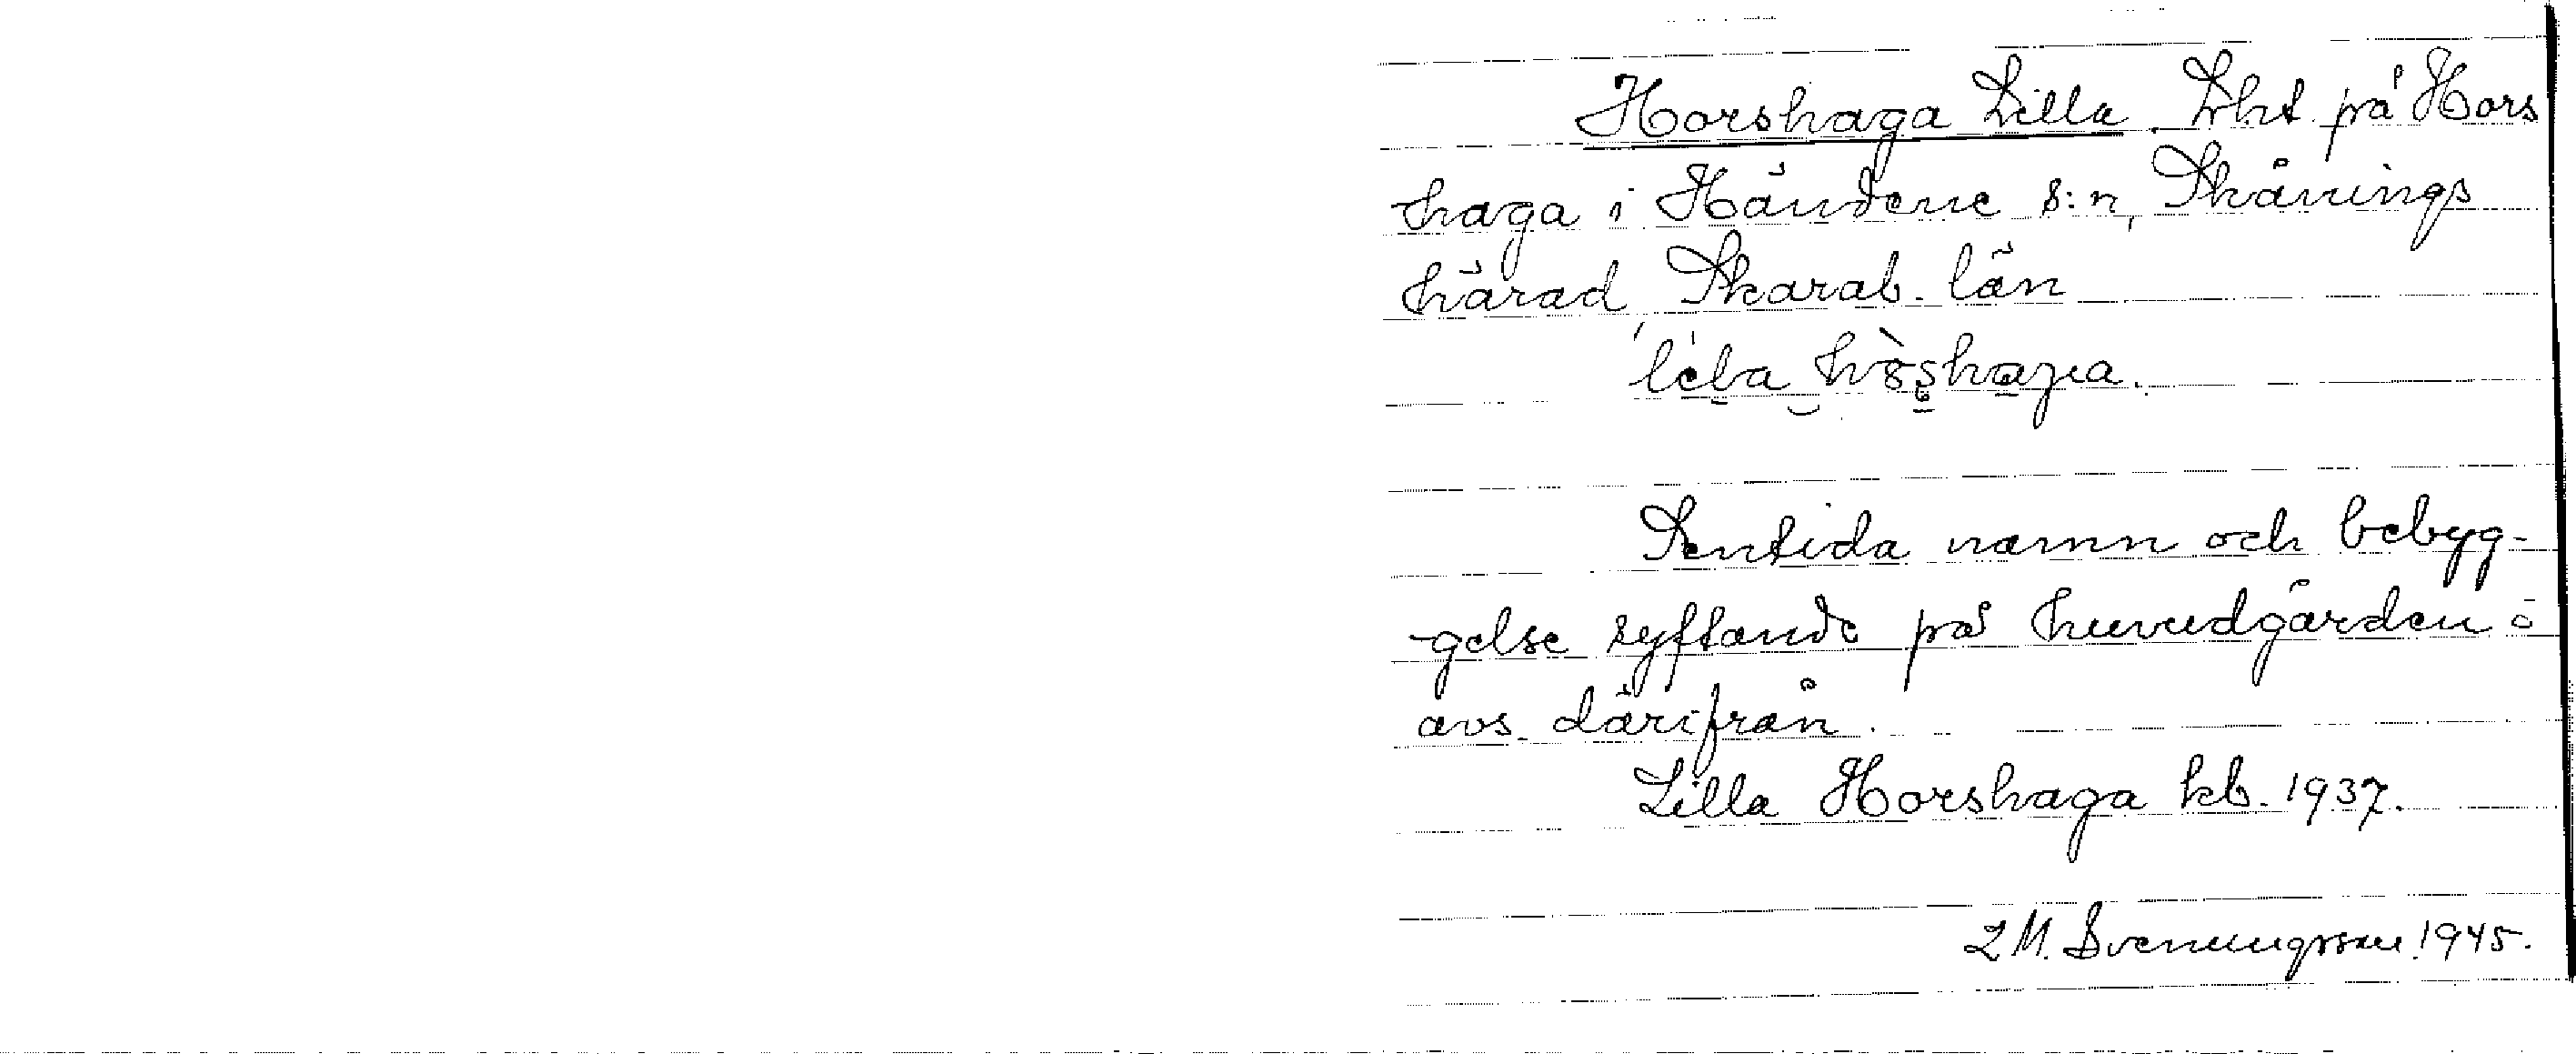 Horshaga Lilla. Lht. på Hors
haga i Händene s:n, Skånings
härad, Skarab. län
Sentida namn och bebyg-
gelse syftande på huvudgården o
avs. därifrån.
Lilla Horshaga kb. 1937.
L M. Svenungsson 1945.